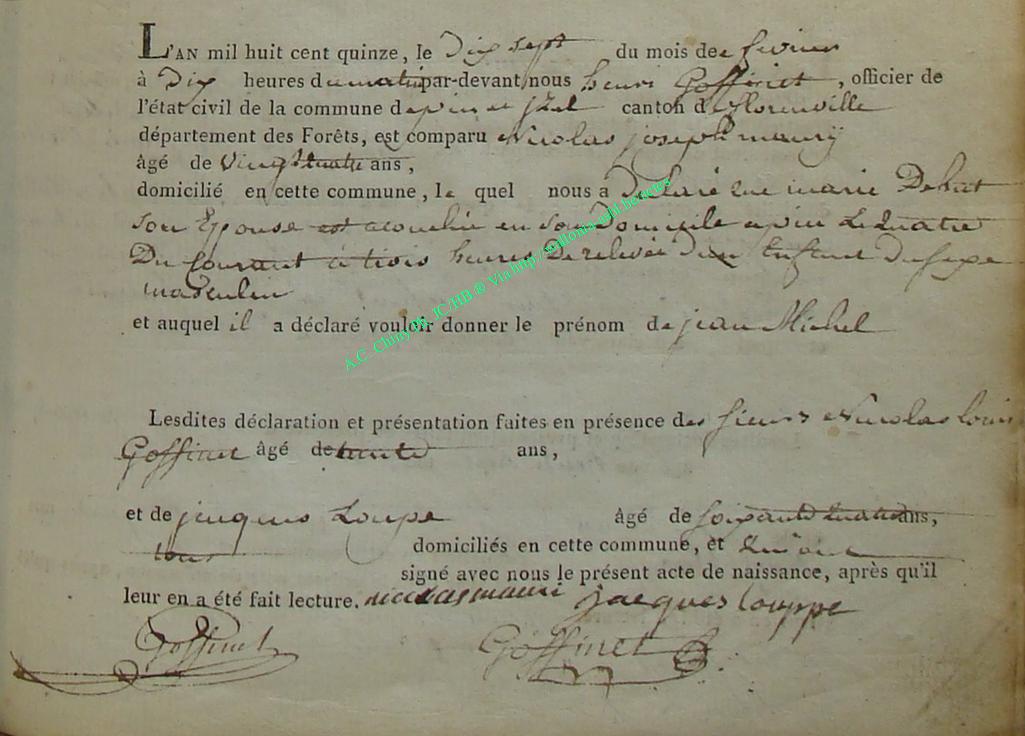 L'AN mil huit cent quinze, le Dix sept du mois de fevrier
à Dix heures du matin par-devant nous henri Goffinet, officier de
l'état civil de la commune de pin et jzel canton de florenville
département des Forêts, est comparu Nicolas joseph maury
âgé de vingt quatre ans,
domicilié en cette commune, le quel nous a declaré que marie
son Epouse est acouchée en son Domicile a pin le quatre
Du Courant à trois heures De relevée d'un Enfant du sexe
masculin
et auquel il a déclaré vouloir donner le prénom de jean Michel
Lesdites déclaration et présentation faites en présence des sieurs Nicolas louis
Goffinet âgé de trente ans,
et de jacques Loupe âgé de soixante quatre ans,
tous domiciliés en cette commune, et qui ont
signé avec nous le présent acte de naissance, après qu'il
leur en a été fait lecture. nicolas mauri jacques louppe
Goffinet Goffinet
A.C. Chiny Ph. JC/HB ® Via http://wallonia-asbl.be/actes